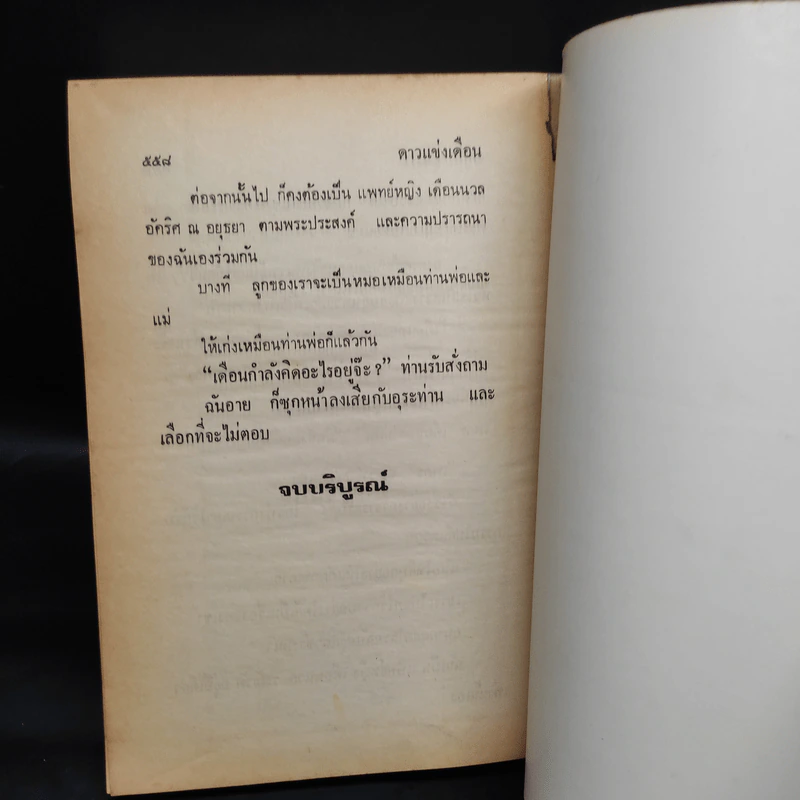 ๕๕๘ ดาวแข่งเดือน
ต่อจากนั้นไป ก็คงต้องเป็น แพทย์หญิง เดือนนวล
อัคริศ ณ อยุธยา ตามพระประสงค์ และความปรารถนา
ของฉันเองร่วมกัน
บางที ลูกของเราจะเป็นหมอเหมือนท่านพ่อและ
แม่
ให้เก่งเหมือนท่านพ่อก็แล้วกัน
“เดือนกำลังคิดอะไรอยู่จ๊ะ ?” ท่านรับสั่งถาม
ฉันอาย ก็ซุกหน้าลงเสียกับอุระท่าน และ
เลือกที่จะไม่ตอบ
จบบริบูรณ์